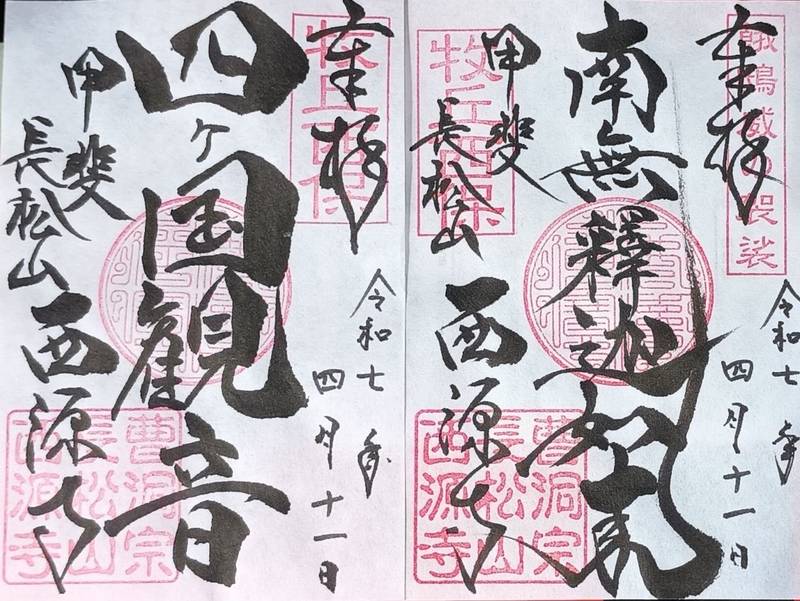 奉拝
袈裟
令和七年
四月十一日
南無釋迦如来
甲斐
長松山
西源寺
牧丘西保
曹洞宗
長松山
西源寺
奉拝
牧丘西保
令和七年
四月十一日
四ヶ国観音
甲斐
長松山
西源寺
曹洞宗
長松山
西源寺